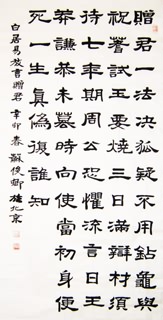 贈君一法決狐疑不用鑽龜與
祝蓍試玉要燒三日滿辯材須
待七年期周公恐懼流言日王
莽謙恭未篡時向使當初身便
死一生真偽復誰知
白居易放言贈君辛卯春蘇俊卿於北京